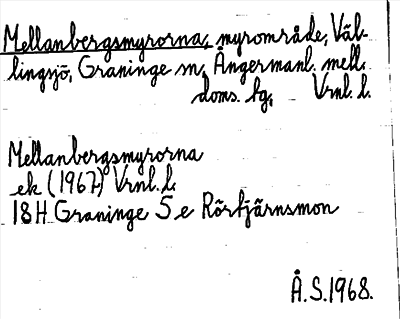 Mellanbergsmyrorna, myrområde, Väl-
lingsjö, Graninge sn, Ångermanl. mell.
doms. bg, Vrnl. l.
Mellanbergsmyrorna
ek (1967) Vrnl. l.
18H Graninge 5e Rörtjärnsmon
Å.S. 1968.